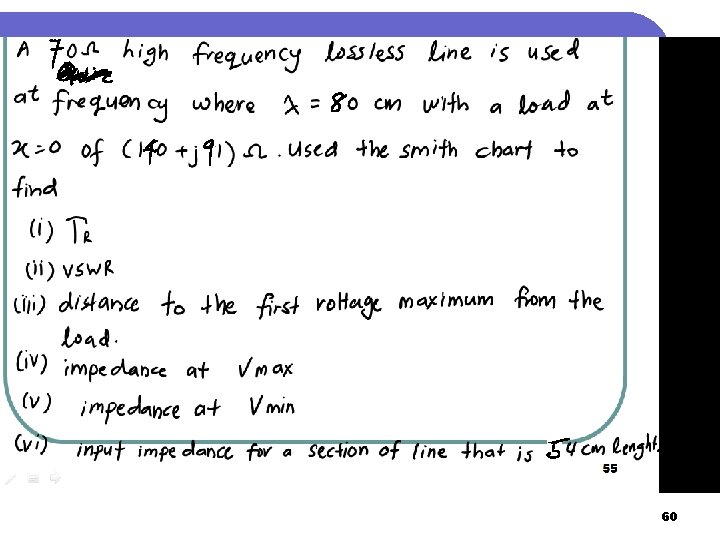 A 70Ω high frequency lossless line is used
at frequency where λ = 80 cm with a load at
x=0 of (140 + j91) Ω. Used the smith chart to
find
(i) ΓR
(ii) VSWR
(iii) distance to the first voltage maximum from the
load.
(iv) impedance at Vmax
(v) impedance at Vmin
(vi) input impedance for a section of line that is 54cm lenght.
55
60